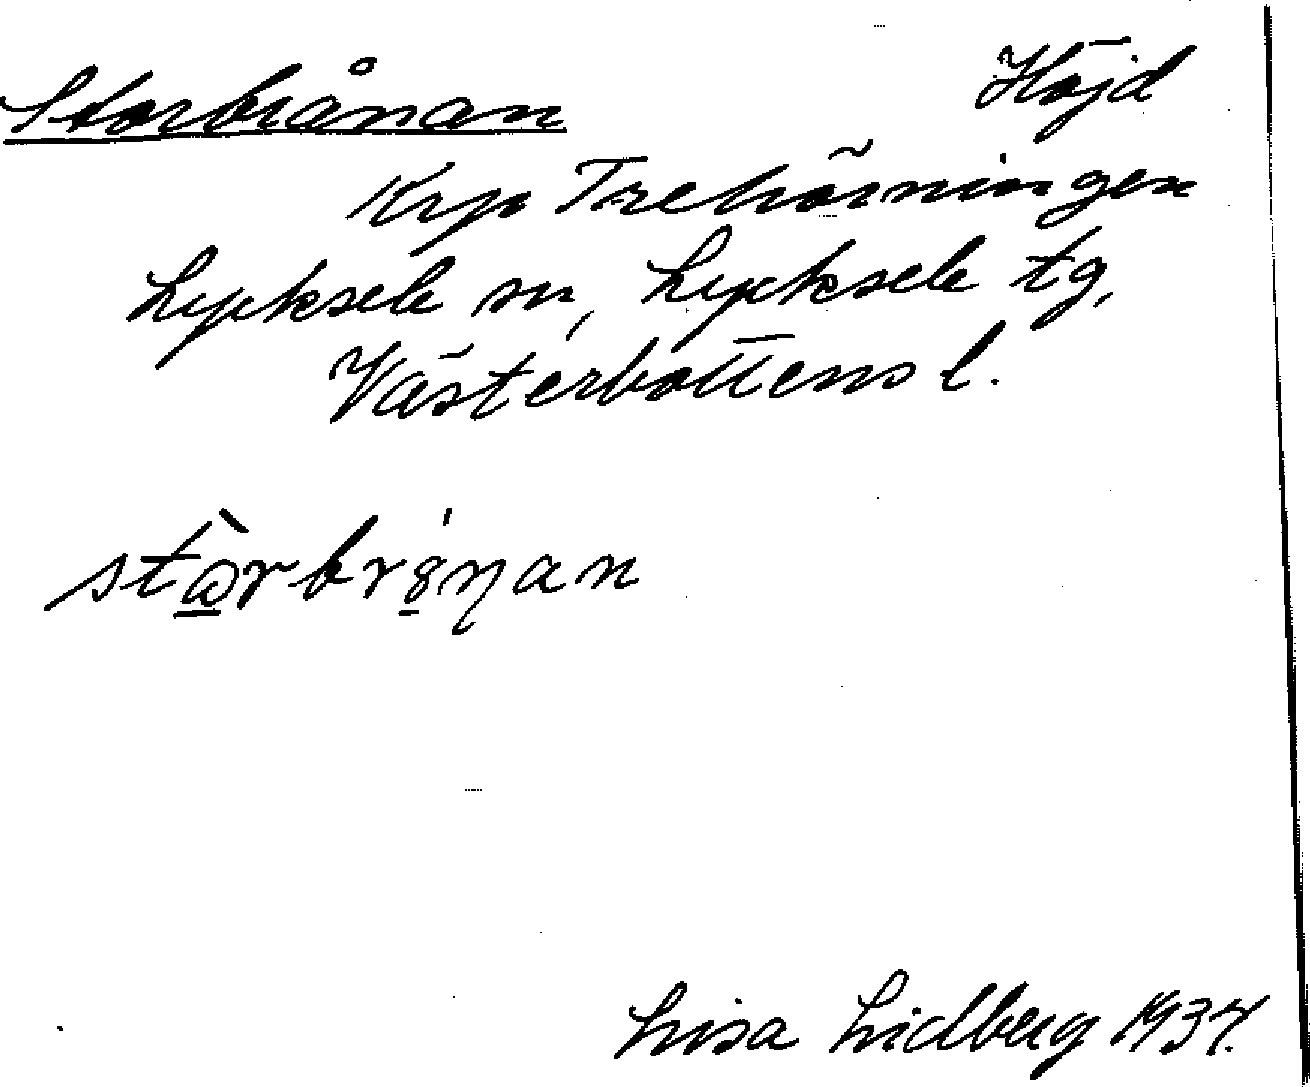 Storbrånan Höjd
Krp Trehörningen
Lycksele sn, Lycksele tg,
Västerbottens l.
Lisa Lidberg 1934.